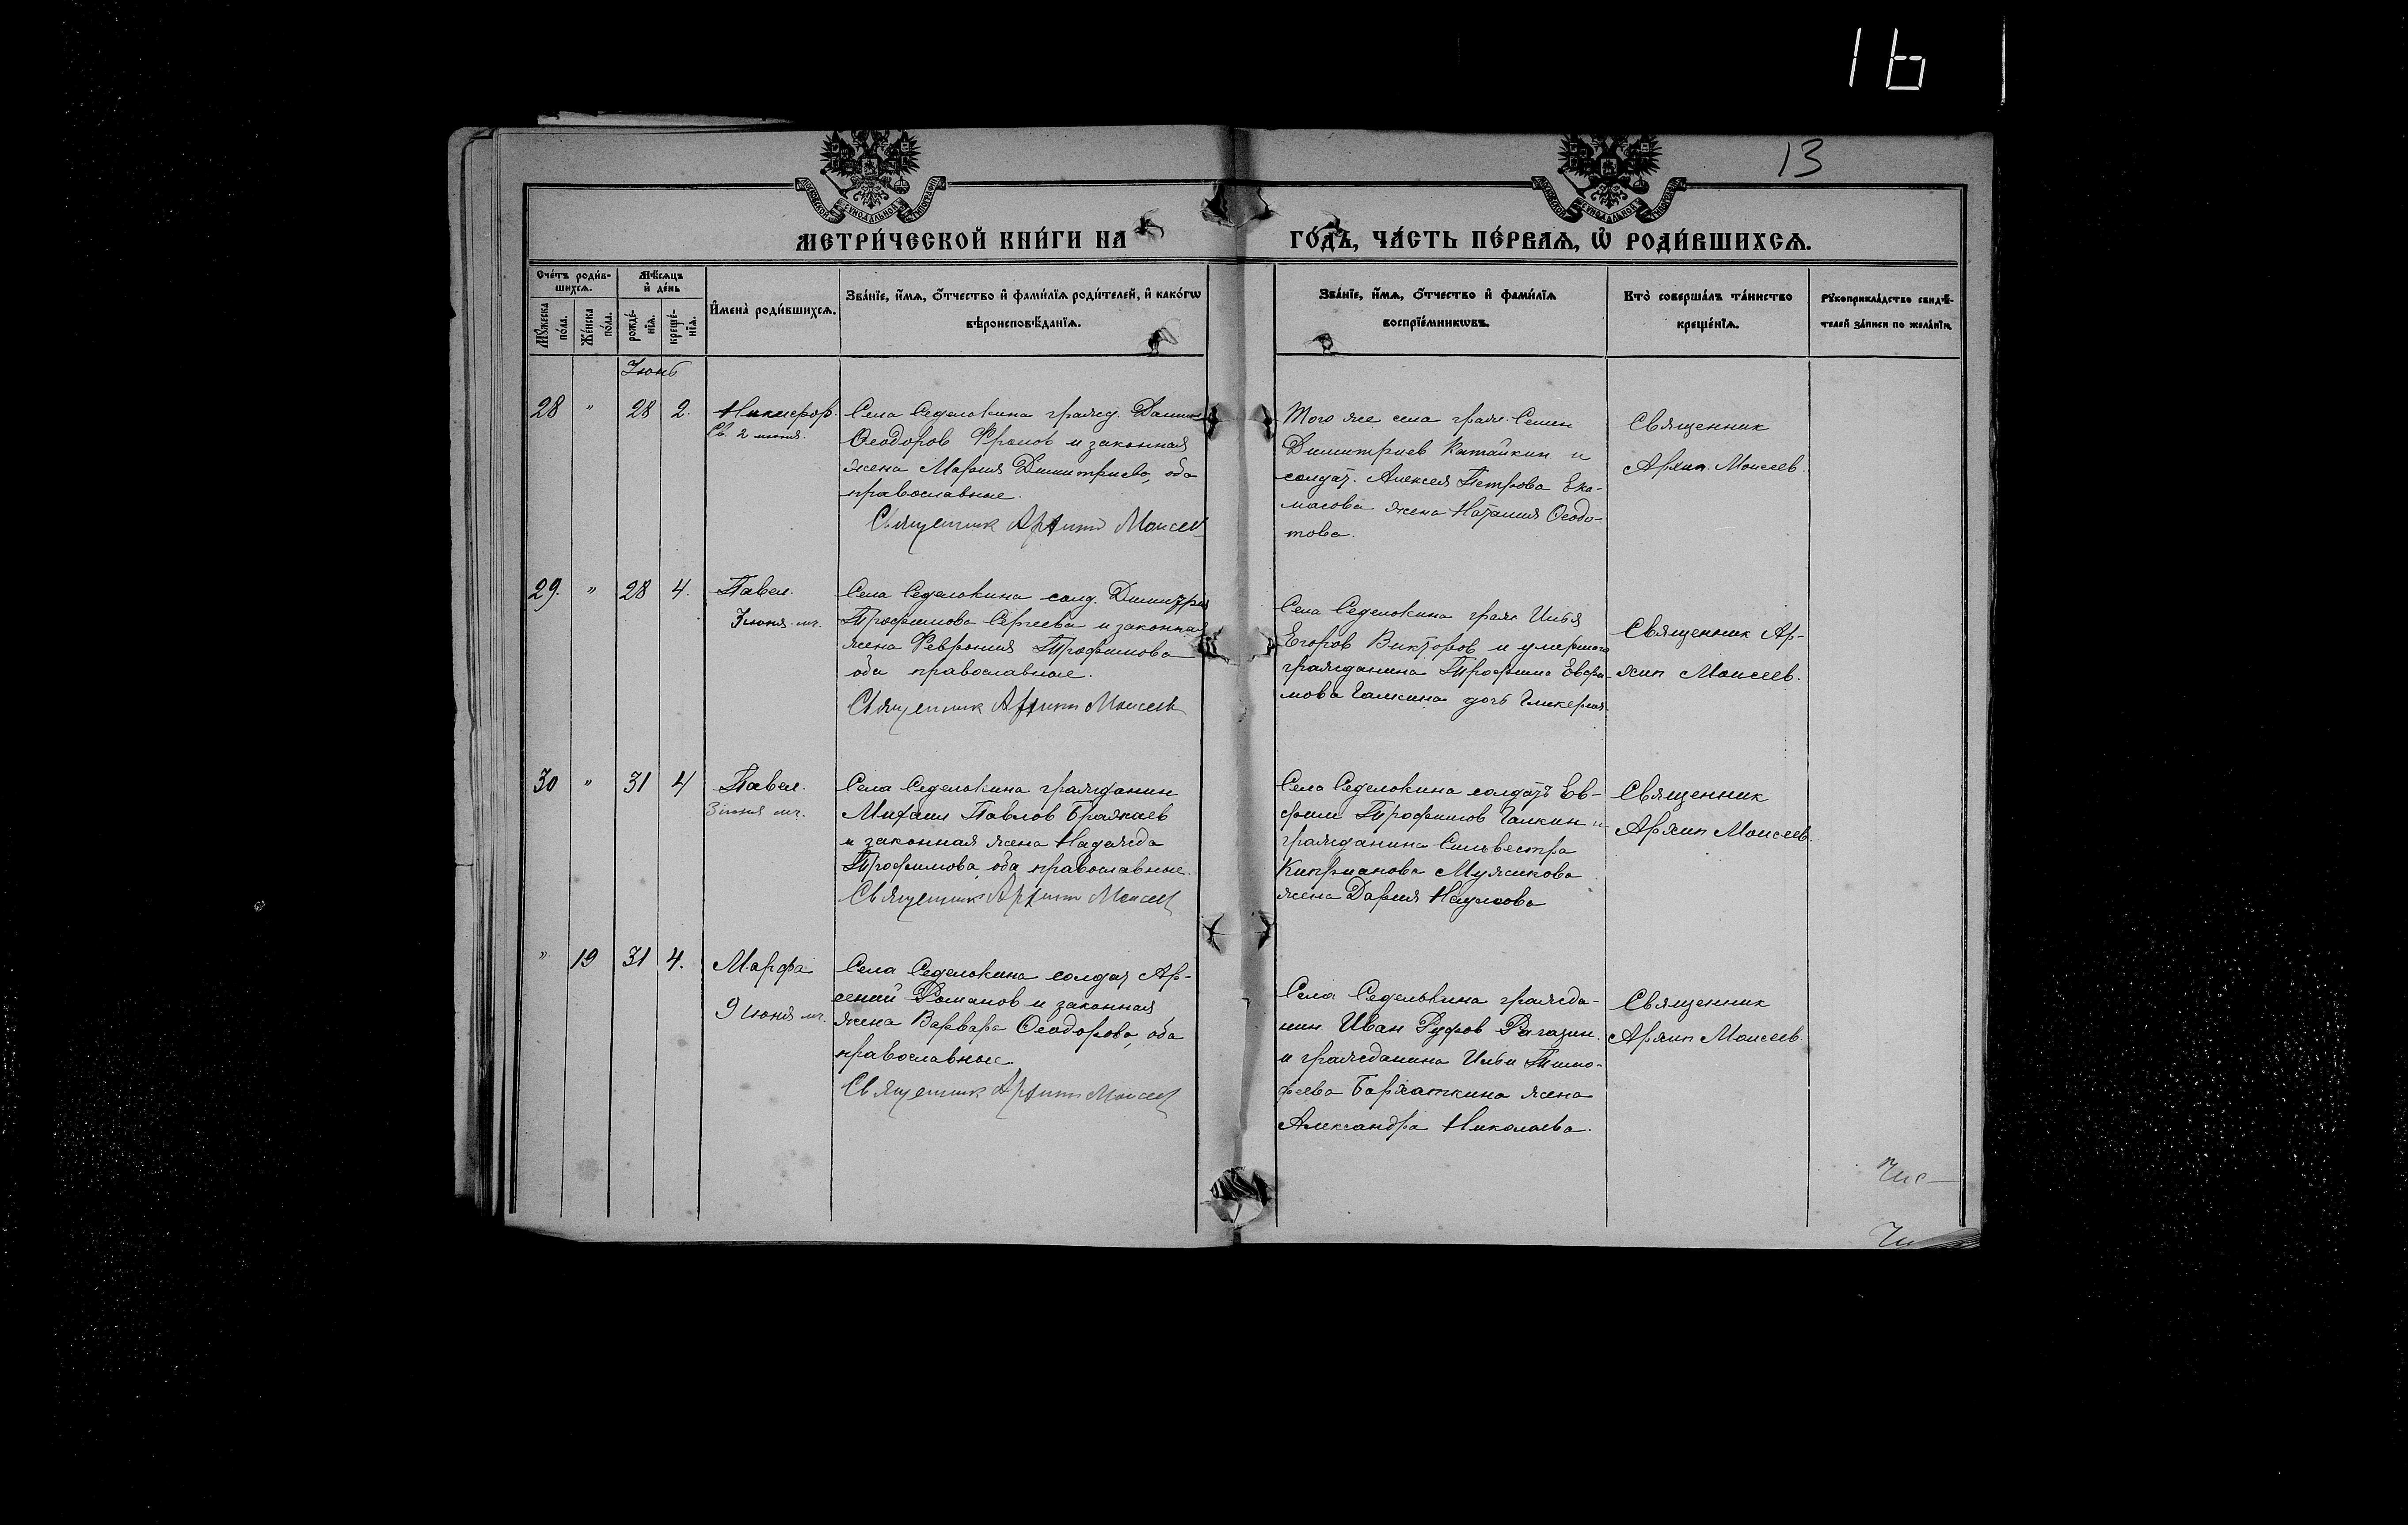 16
13
МЕТРИ́ЧЕСКОЙ КНИ́ГИ НА
ГО́ДЪ, ЧА́СТЬ ПЕ́РВАѦ, Ѡ҆ РОДИ́ВШИХСѦ.
Сче́тъ роди́в-
шихсѧ.
Мѣ́сѧцъ
и҆ де́нь
Мꙋ́жеска
по́ла.
Же́нска
по́ла.
рожде́-
нїѧ.
креще́-
нїѧ.
И҆мена̀ роди́вшихсѧ.
Зва́нїе, и҆́мѧ, ѻ҆́тчество и҆ фами́лїѧ роди́телей, и҆ како́гѡ
вѣроисповѣ́данїѧ.
Зва́нїе, и҆́мѧ, ѻ҆́тчество и҆ фами́лїѧ
воспрїе́мникѡвъ.
Кто̀ соверша́лъ та́инство
креще́нїѧ.
Рꙋкоприкла́дство свидѣ́-
телей за́писи по жела́нїю.
Июнь
28 " 28 2. Никифор.
Св. 2 июня.
Села Седелькина гражд.
Феодоров Фролов и законная
жена Мария Димитриева, оба
православные.
Священник Архипп Моисеев
Того же села граж. Семен
Димитриев Китайкин и
солдат. Алексея Петрова Ека-
масова жена Наталия Феодо-
това.
Священник
Архип Моисеев.
29. " 28 4. Павел.
3 июня мч.
Села Седелькина солд. Димитрия
Трофимова Сергеева и законная
жена Феврония Трофимова
оба православные.
Священник Архипп Моисеев
Села Седелькина граж Илья
Егоров Викторов и умершего
гражданина Трофима Евфи-
мова Галкина дочь Гликерия.
Священник Ар-
хип Моисеев.
30 " 31 4 Павел.
3 июня мч.
Села Седелькина гражданин
Михаил Павлов Бражкаев
и законная жена Надежда
Трофимова, оба православные.
Священник Архипп Моисеев
Села Седелькина солдатъ Ев-
фим Трофимов Галкин и
гражданина Сильвестра
Киприанова Мужикова
жена Дария Наумова
Священник
Архип Моисеев.
" 19 31 4. Марфа
9 июня мч.
Села Седелькина солдат Ар-
сений Романов и законная
жена Варвара Феодорова, оба
православные.
Священник Архипп Моисеев
Села Седелькина гражда-
нин Иван Руфов Рагазин.
и гражданина Ильи Тимо-
феева Бархаткина жена
Александра Николаева.
Священник
Архип Моисеев.